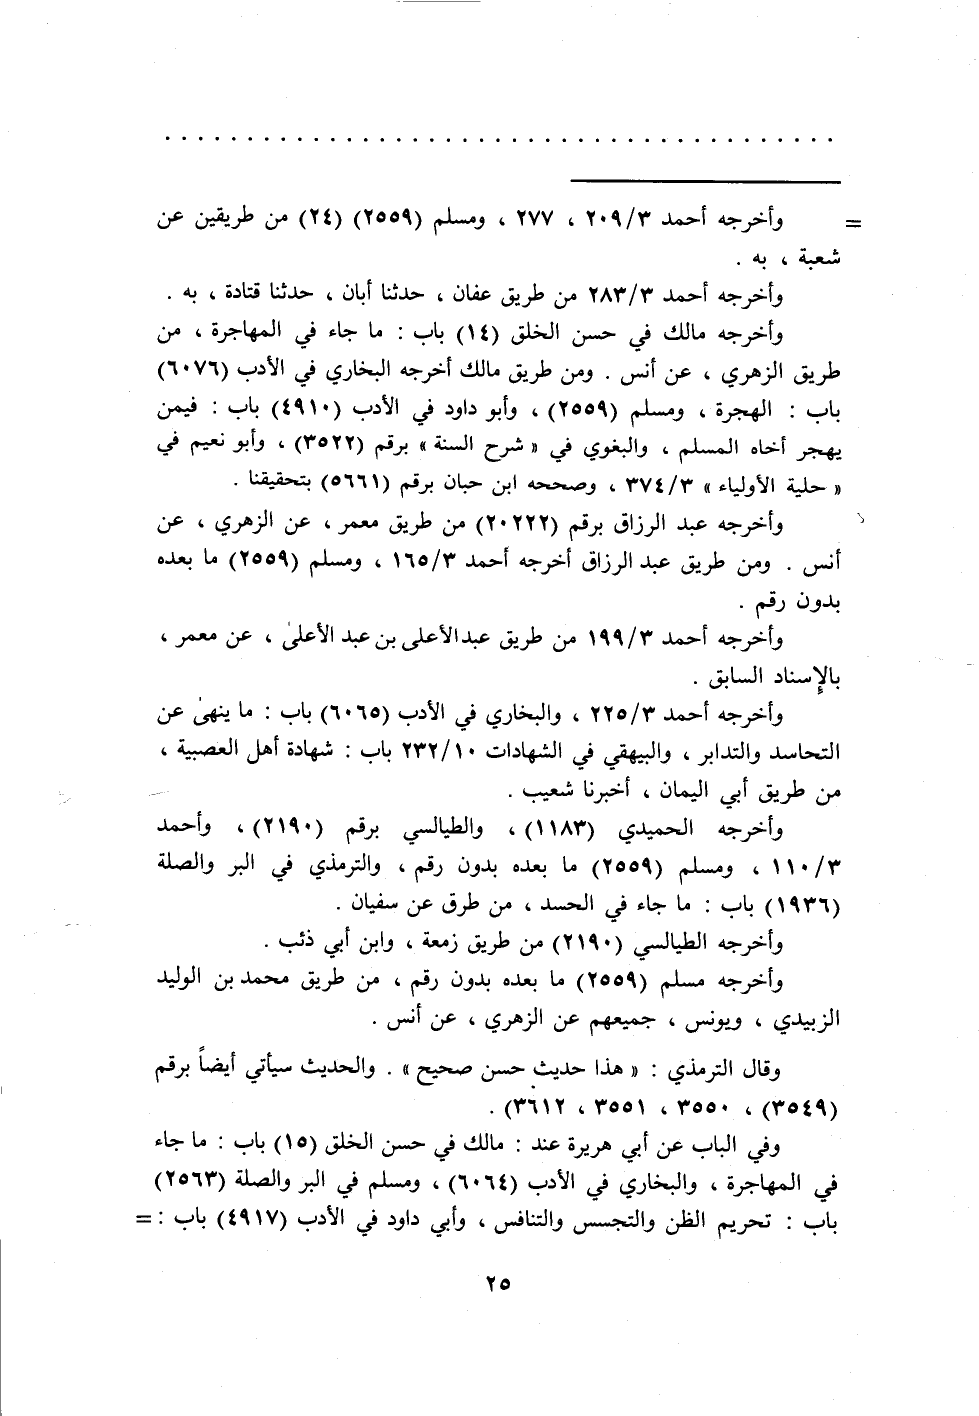 . . . . . . . . . . . . . . . . . . . . . . . . . . . . . . . . . . . . . . . . . .
= وأخرجه أحمد ٢٠٩/٣ ، ٢٧٧ ، ومسلم (٢٥٥٩) (٢٤) من طريقين عن
شعبة ، به .
وأخرجه أحمد ٢٨٣/٣ من طريق عفان ، حدثنا أبان ، حدثنا قتادة ، به .
وأخرجه مالك في حسن الخلق (١٤) باب : ما جاء في المهاجرة ، من
طريق الزهري ، عن أنس . ومن طريق مالك أخرجه البخاري في الأدب (٦٠٧٦)
باب : الهجرة ، ومسلم (٢٥٥٩) ، وأبو داود في الأدب (٤٩١٠) باب : فيمن
يهجر أخاه المسلم ، والبغوي في « شرح السنة » برقم (٣٥٢٢) ، وأبو نعيم في
« حلية الأولياء » ٣٧٤/٣ ، وصححه ابن حبان برقم (٥٦٦١) بتحقيقنا .
وأخرجه عبد الرزاق برقم (٢٠٢٢٢) من طريق معمر ، عن الزهري ، عن
أنس . ومن طريق عبد الرزاق أخرجه أحمد ١٦٥/٣ ، ومسلم (٢٥٥٩) ما بعده
بدون رقم .
وأخرجه أحمد ١٩٩/٣ من طريق عبد الأعلى بن عبد الأعلىٰ ، عن معمر ،
بالإِسناد السابق .
وأخرجه أحمد ٢٢٥/٣ ، والبخاري في الأدب (٦٠٦٥) باب : ما ينهىٰ عن
التحاسد والتدابر ، والبيهقي في الشهادات ٢٣٢/١٠ باب : شهادة أهل العصبية ،
من طريق أبي اليمان ، أخبرنا شعيب .
وأخرجه الحميدي (١١٨٣) ، والطيالسي برقم (٢١٩٠) ، وأحمد
١١٠/٣ ، ومسلم (٢٥٥٩) ما بعده بدون رقم ، والترمذي في البر والصلة
(١٩٣٦) باب : ما جاء في الحسد ، من طرق عن سفيان .
وأخرجه الطيالسي (٢١٩٠) من طريق زمعة ، وابن أبي ذئب .
وأخرجه مسلم (٢٥٥٩) ما بعده بدون رقم ، من طريق محمد بن الوليد
الزبيدي ، ويونس ، جميعهم عن الزهري ، عن أنس .
وقال الترمذي : « هذا حديث حسن صحيح » . والحديث سيأتي أيضاً برقم
(٣٥٤٩) ، ٣٥٥٠ ، ٣٥٥١ ، ٣٦١٢) .
وفي الباب عن أبي هريرة عند : مالك في حسن الخلق (١٥) باب : ما جاء
في المهاجرة ، والبخاري في الأدب (٦٠٦٤) ، ومسلم في البر والصلة (٢٥٦٣)
باب : تحريم الظن والتجسس والتنافس ، وأبي داود في الأدب (٤٩١٧) باب : =
٢٥